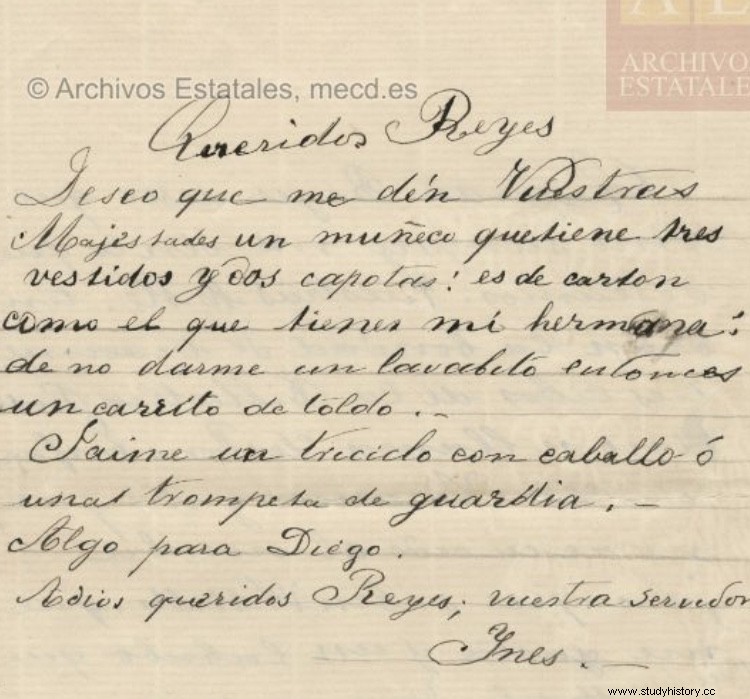 ARCHIVOS
ESTATALE
© Archivos Estatales, mecd.es
Queridos Reyes
Deseo que me dén Vuestras
Majestades un muñeco quetiene tres
vestidos y dos capotas: es de carton
como el que tienes mi hermana:
de no darme un lavabito entonces
un carrito de toldo. -
Jaime un triciclo con caballo ó
una trompeta de guardia. -
Algo para Diego.
Adios queridos Reyes; vuestra servidor
Ynes. -
www.studyhistory.cc